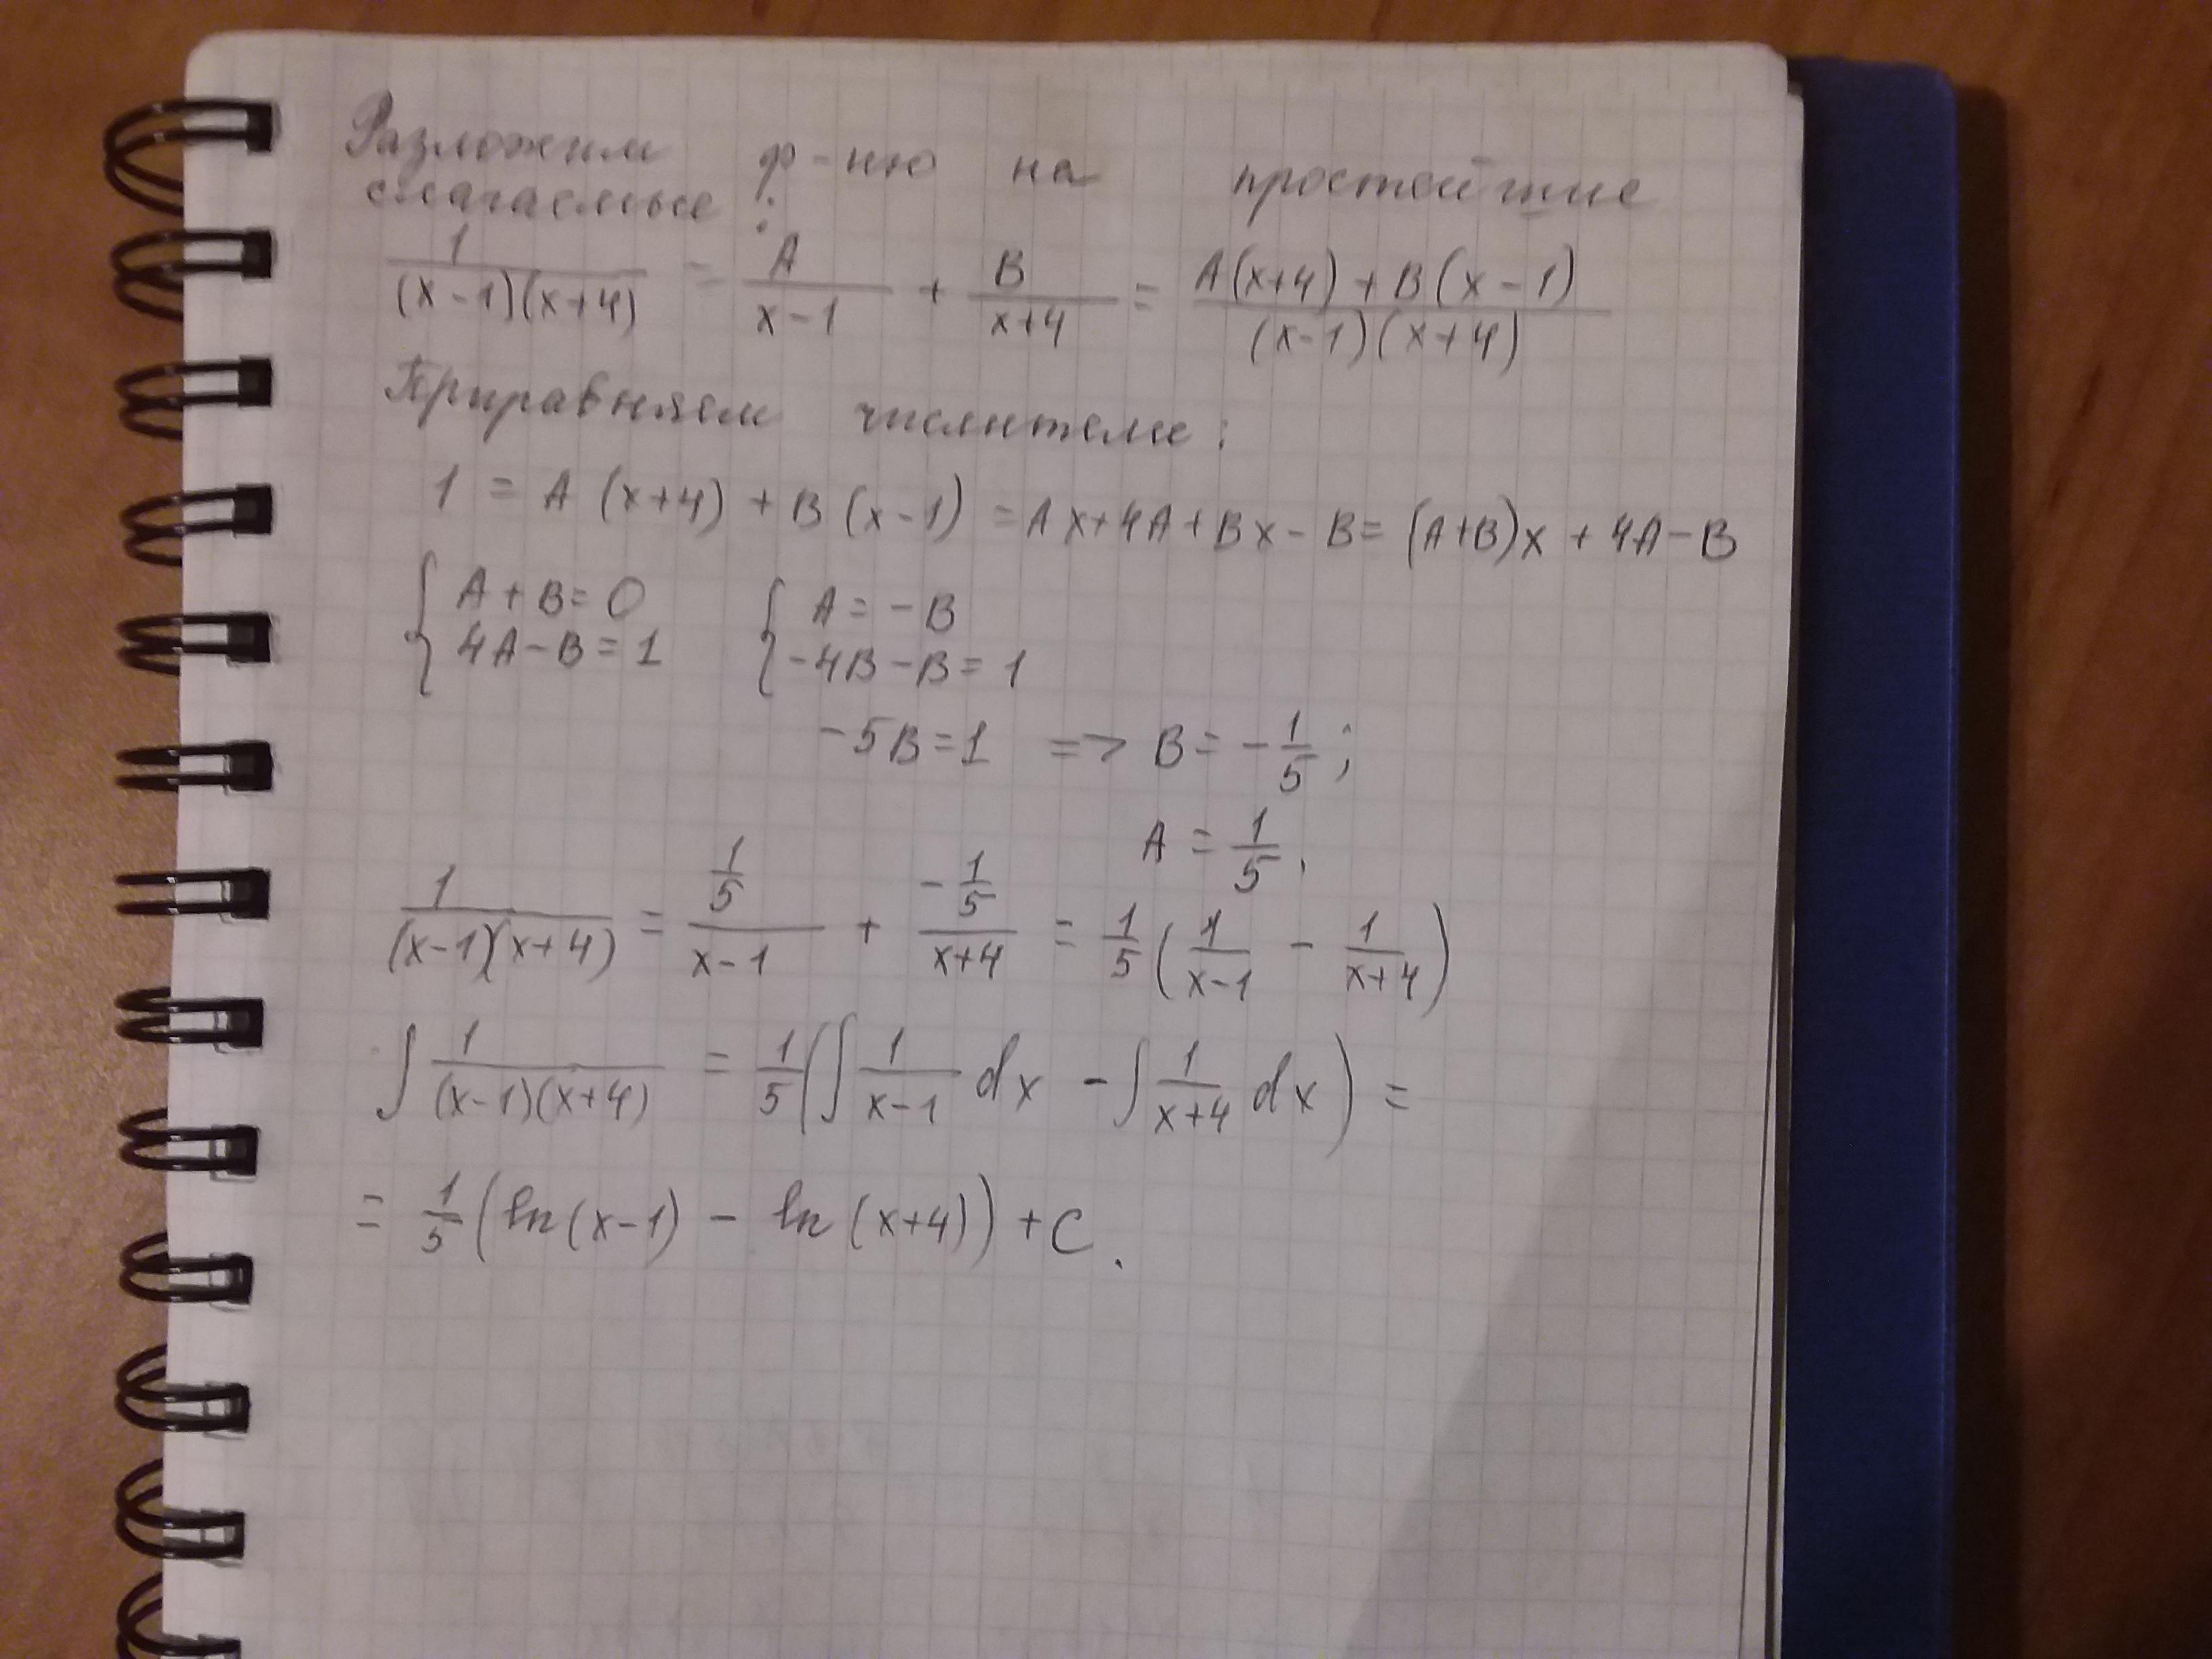 Разложим ф-ню на простейшие
слагаемые:
1/((x-1)(x+4)) = A/(x-1) + B/(x+4) = (A(x+4)+B(x-1))/((x-1)(x+4))
Приравняем числители:
1 = A(x+4)+B(x-1) = Ax+4A+Bx-B = (A+B)x+4A-B
{ A+B=0 { A=-B
{ 4A-B=1 { -4B-B=1
-5B=1 => B=-1/5;
A=1/5.
1/((x-1)(x+4)) = (1/5)/(x-1) + (-1/5)/(x+4) = 1/5(1/(x-1) - 1/(x+4))
∫ 1/((x-1)(x+4)) = 1/5(∫ 1/(x-1) dx - ∫ 1/(x+4) dx) =
= 1/5(ln(x-1) - ln(x+4)) + C.